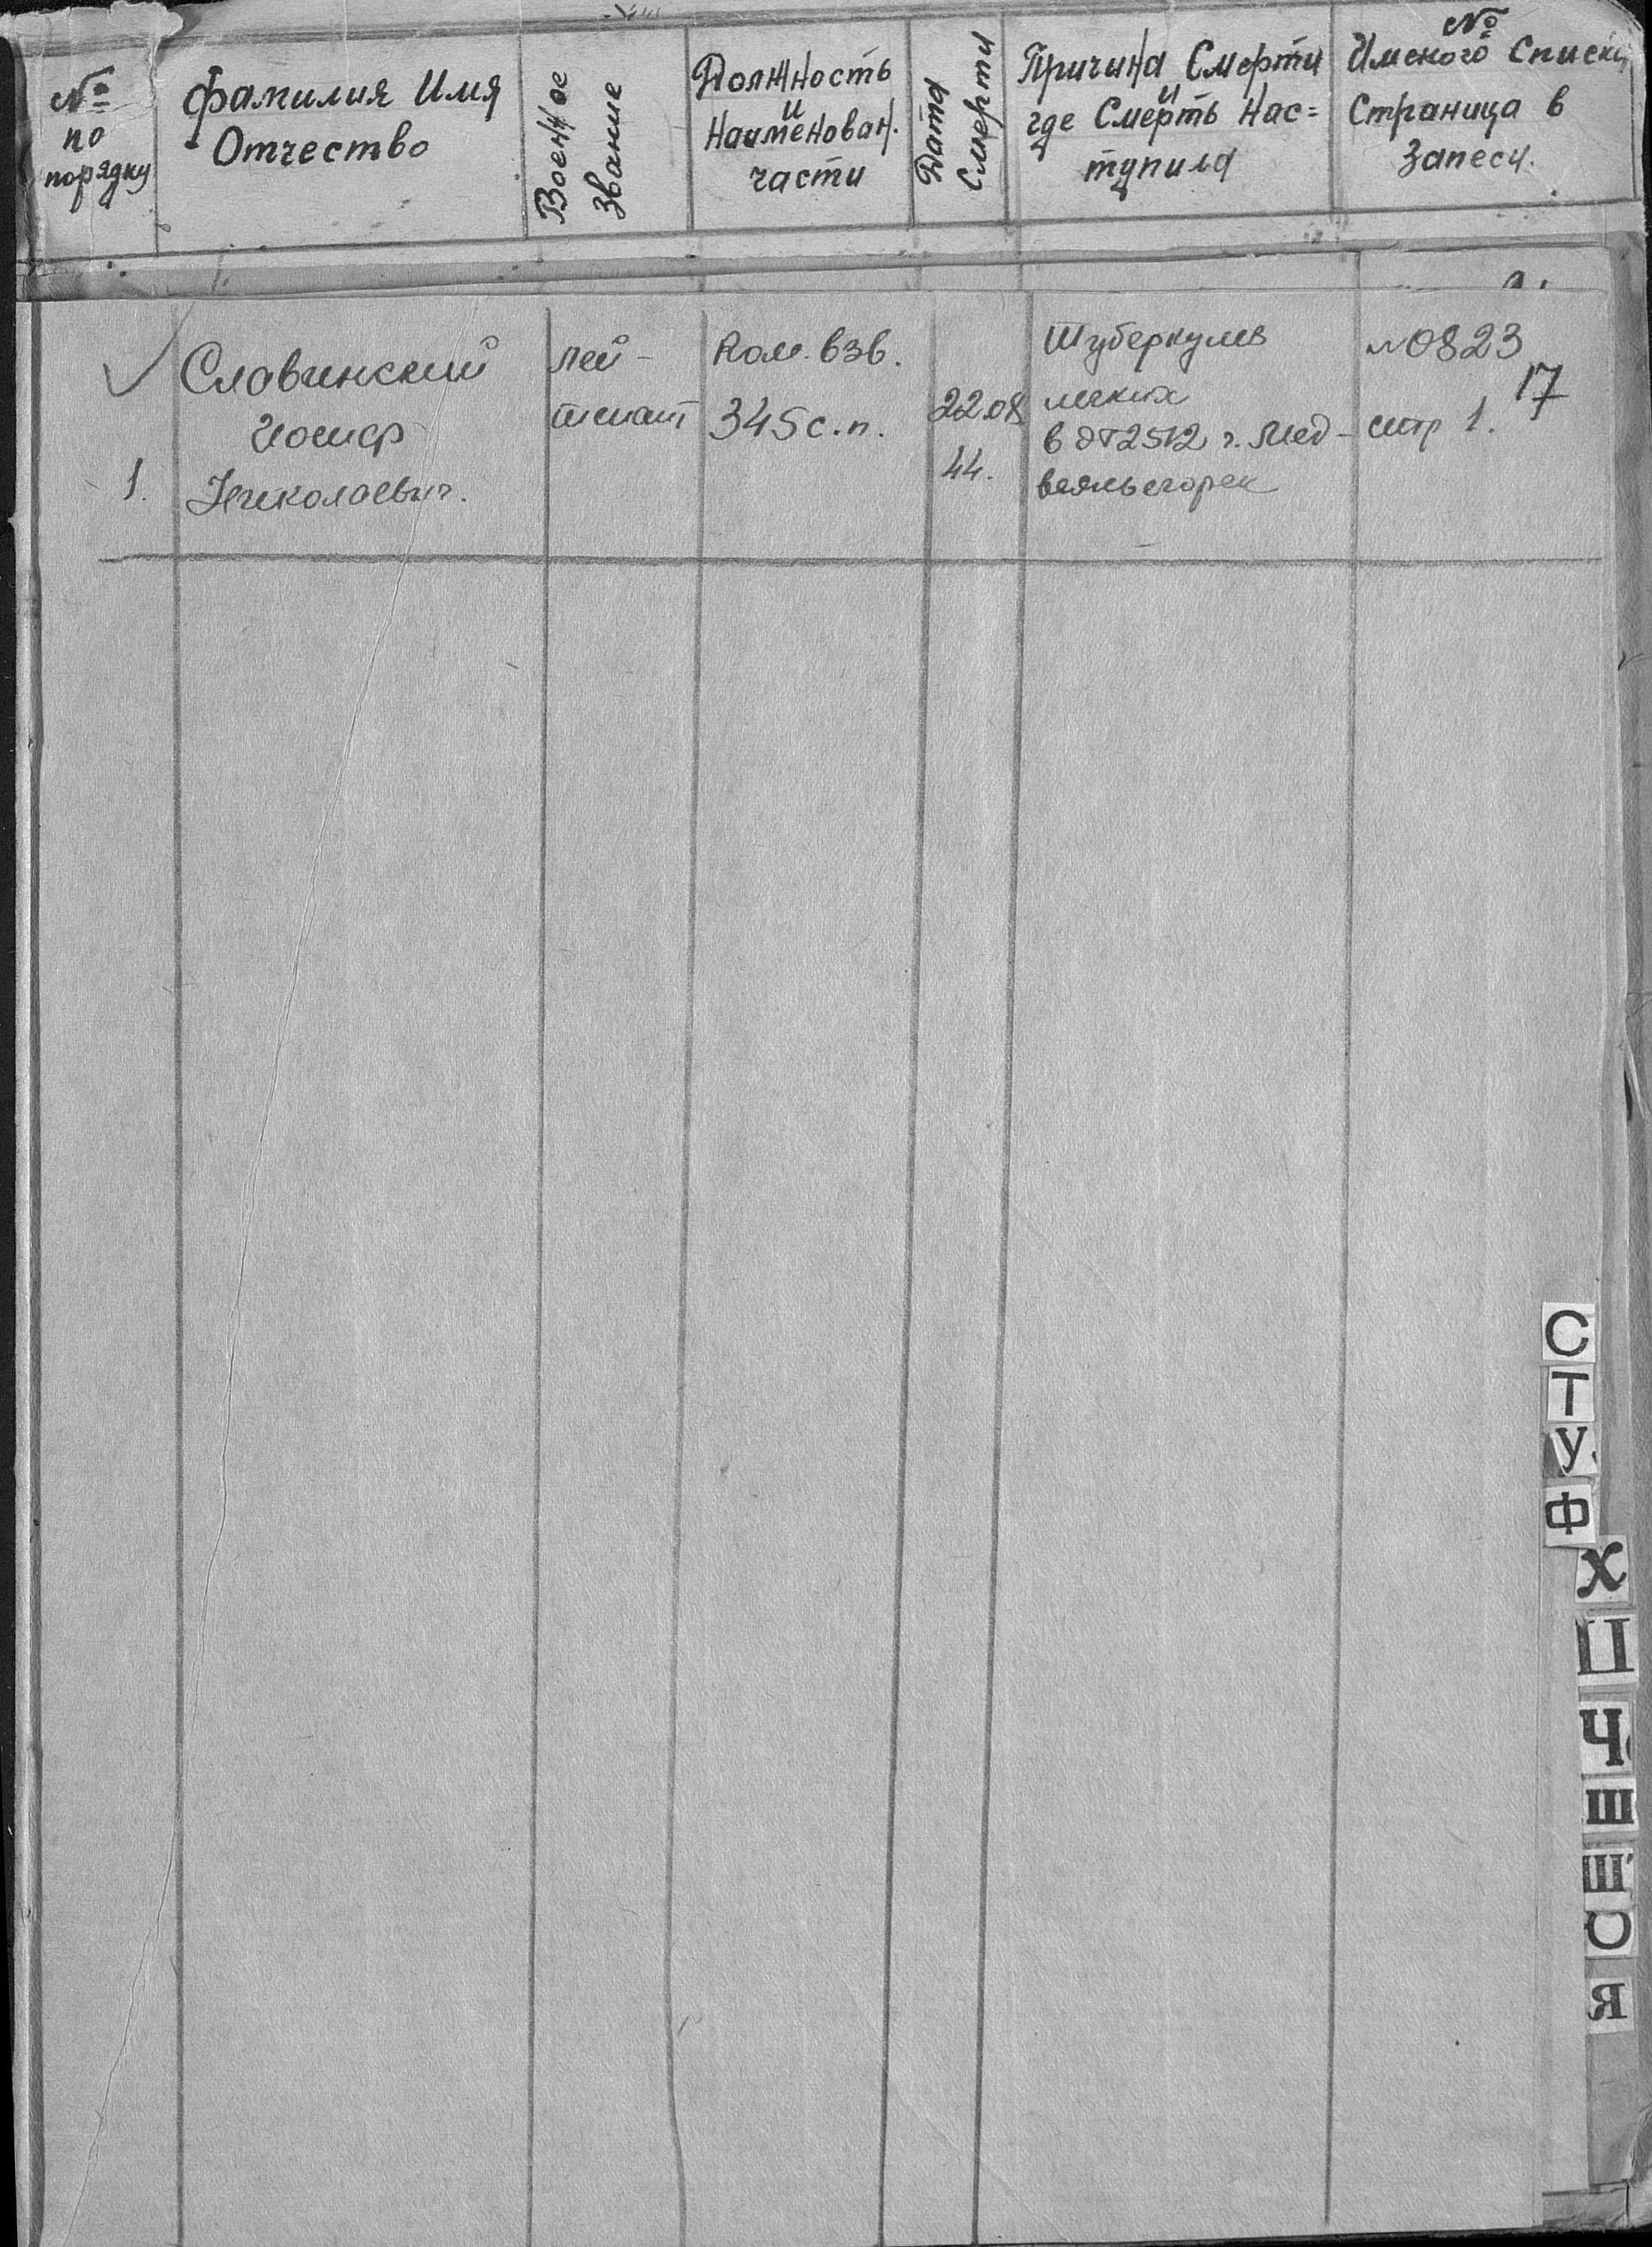 №
по
порядку
Фамилия Имя
Отчество
Военное
звание
Должность
и
Наименован.
части
Дата
Смерти
Причина Смерти
и
где Смерть Нас=
тупила
№
Имского Списка
Страница в
Запеси.
1.
Славинский
Иосиф
Николаевич.
лей-
тенант
Ком. взв.
345 с.п.
22.08
44.
Туберкулез
легких
в ЭГ2512 г. Мед-
вежьегорск
№0823
17
стр 1.
С
Т
У
Ф
Х
Ц
Ч
Ш
Щ
Я